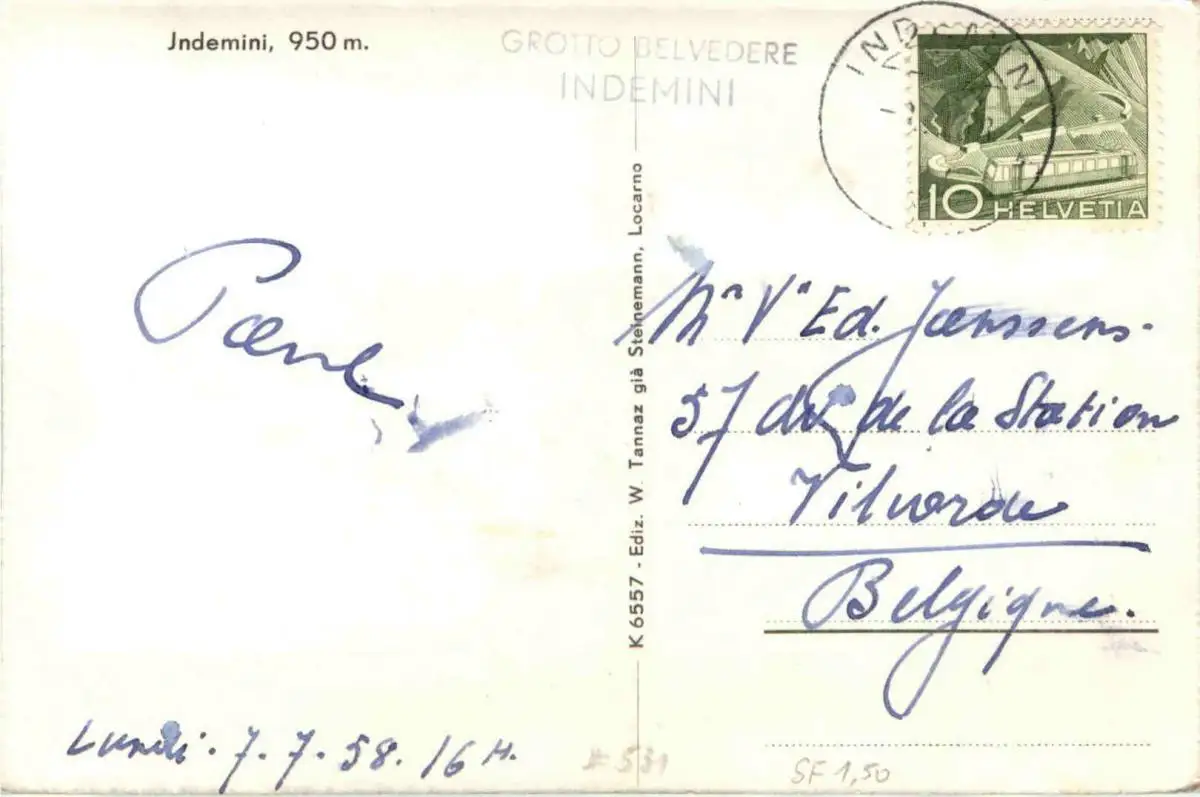 Jndemini, 950 m.
GROTTO BELVEDERE
INDEMINI
INDEMIN
10 HELVETIA
K 6557 - Ediz. W. Tannaz già Steinemann, Locarno
Paul
Lundi. 7.7.58. 16 H.
Mn Vn Ed. Janssens.
57 de la Station
Vilvorde
Belgique.
# 531
SF 1,50